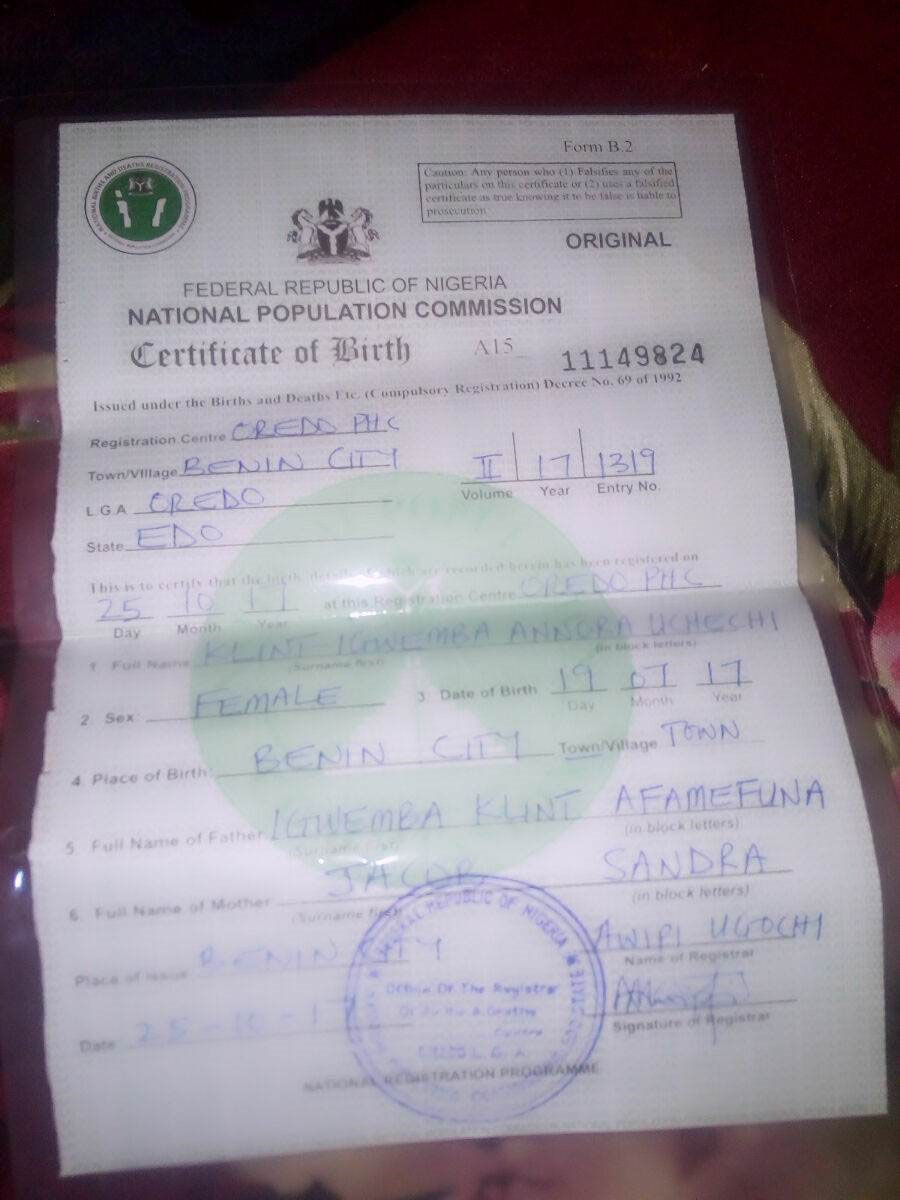 Form B.2
Caution: Any person who (1) Falsifies any of the
particulars on this certificate or (2) uses a falsified
certificate as true knowing it to be false is liable to
prosecution
ORIGINAL
FEDERAL REPUBLIC OF NIGERIA
NATIONAL POPULATION COMMISSION
Certificate of Birth A15 11149824
Issued under the Births and Deaths Etc. (Compulsory Registration) Decree No. 69 of 1992
Registration Centre OREDO PHC
Town/Village BENIN CITY
II 17 1319
Volume Year Entry No.
L G A OREDO
State EDO
This is to certify that the birth, details of which are recorded herein has been registered on
25 10 17 at this Registration Centre OREDO PHC
Day Month Year
1. Full Name KLINT-IGWEMBA ANNORA UCHECHI
(Surname first) (in block letters)
2. Sex FEMALE 3. Date of Birth 19 07 17
Day Month Year
4. Place of Birth: BENIN CITY Town/Village TOWN
5. Full Name of Father IGWEMBA KLINT AFAMEFUNA
(Surname first) (in block letters)
6. Full Name of Mother JACOB SANDRA
(Surname first) (in block letters)
Place of Issue BENIN CITY AWIPI UGOCHI
Name of Registrar
Date 25-10-1
Signature of Registrar
NATIONAL REGISTRATION PROGRAMME
REPUBLIC OF NIGERIA
Office Of The Registrar